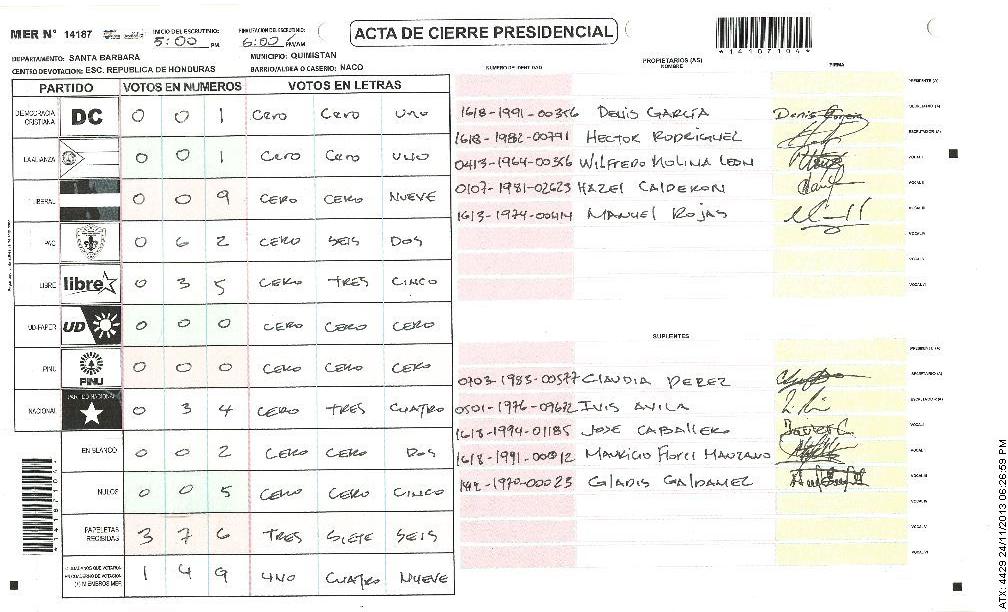 MER N° 14187
INICIO DEL ESCRUTINIO: 5:00 PM.
FINALIZACION DEL ESCRUTINIO: 6:00 PM/AM
ACTA DE CIERRE PRESIDENCIAL
*14187104*
DEPARTAMENTO: SANTA BARBARA
MUNICIPIO: QUIMISTAN
CENTRO DE VOTACION: ESC. REPUBLICA DE HONDURAS
BARRIO/ALDEA O CASERIO: NACO
PARTIDO VOTOS EN NUMEROS VOTOS EN LETRAS
DEMOCRACIA CRISTIANA DC 0 0 1 Cero Cero Uno
LA ALIANZA 0 0 1 Cero Cero UNO
LIBERAL 0 0 9 CERO CERO NUEVE
PAC 0 6 2 CERO SEIS DOS
LIBRE libre 0 3 5 CERO TRES CINCO
UD-FAPER UD 0 0 0 CERO CERO CERO
PINU PINU 0 0 0 CERO CERO CERO
NACIONAL PARTIDO NACIONAL 0 3 4 CERO TRES CUATRO
EN BLANCO 0 0 2 CERO CERO DOS
NULOS 0 0 5 CERO CERO CINCO
PAPELETAS RECIBIDAS 3 7 6 TRES SIETE SEIS
CIUDADANOS QUE VOTARON EN CUADERNO DE VOTACION (+) MIEMBROS MER 1 4 9 UNO CUATRO NUEVE
PROPIETARIOS (AS)
NUMERO DE IDENTIDAD NOMBRE FIRMA
PRESIDENTE (A)
1618-1991-00356 DENIS GARCÍA Denis Garcia SECRETARIO (A)
1618-1982-00791 HECTOR RODRIGUEZ ESCRUTADOR (A)
0413-1964-00356 WILFREDO MOLINA LEON VOCAL I
0107-1981-02623 HAZEL CALDERON VOCAL II
1613-1974-00414 MANUEL ROJAS VOCAL III
VOCAL IV
VOCAL V
VOCAL VI
SUPLENTES
PRESIDENTE (A)
0703-1983-00577 CLAUDIA PEREZ SECRETARIO (A)
0501-1976-09672 IVIS AVILA ESCRUTADOR (A)
1618-1994-01185 JOSE CABALLERO VOCAL I
1618-1991-00012 MAURICIO MANZANO VOCAL II
1970-00023 GLADIS GALDAMEZ VOCAL III
VOCAL IV
VOCAL V
VOCAL VI
ATX: 4429 24/11/2013 06:26:59 PM